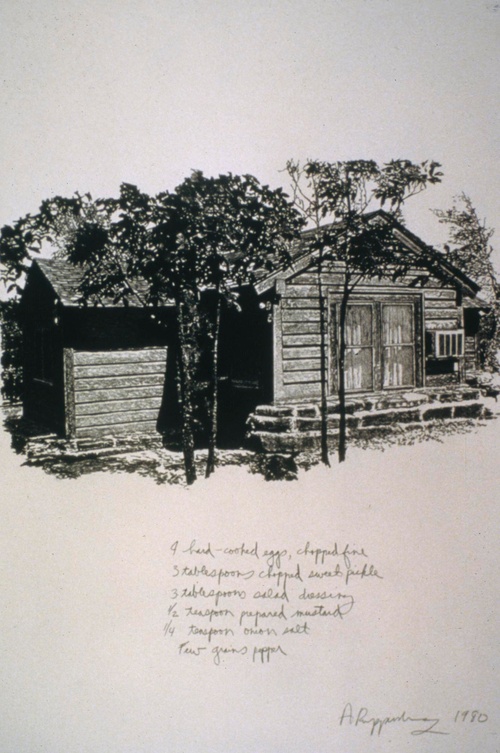 4 hard-cooked eggs, chopped fine
3 tablespoons chopped sweet pickle
3 tablespoons salad dressing
1/2 teaspoon prepared mustard
1/4 teaspoon onion salt
Few grains pepper
1980